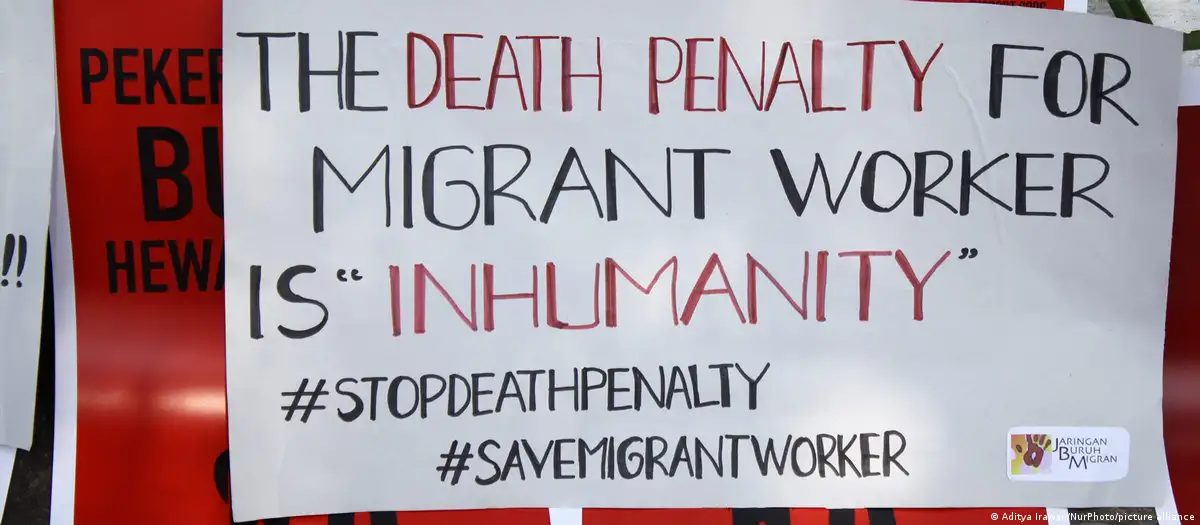 THE DEATH PENALTY FOR
MIGRANT WORKER
IS “INHUMANITY”
#STOPDEATHPENALTY
#SAVEMIGRANTWORKER
JARINGAN
BURUH
MIGRAN
PEKER
BU
HEWA
!!
© Aditya Irawan/NurPhoto/picture alliance